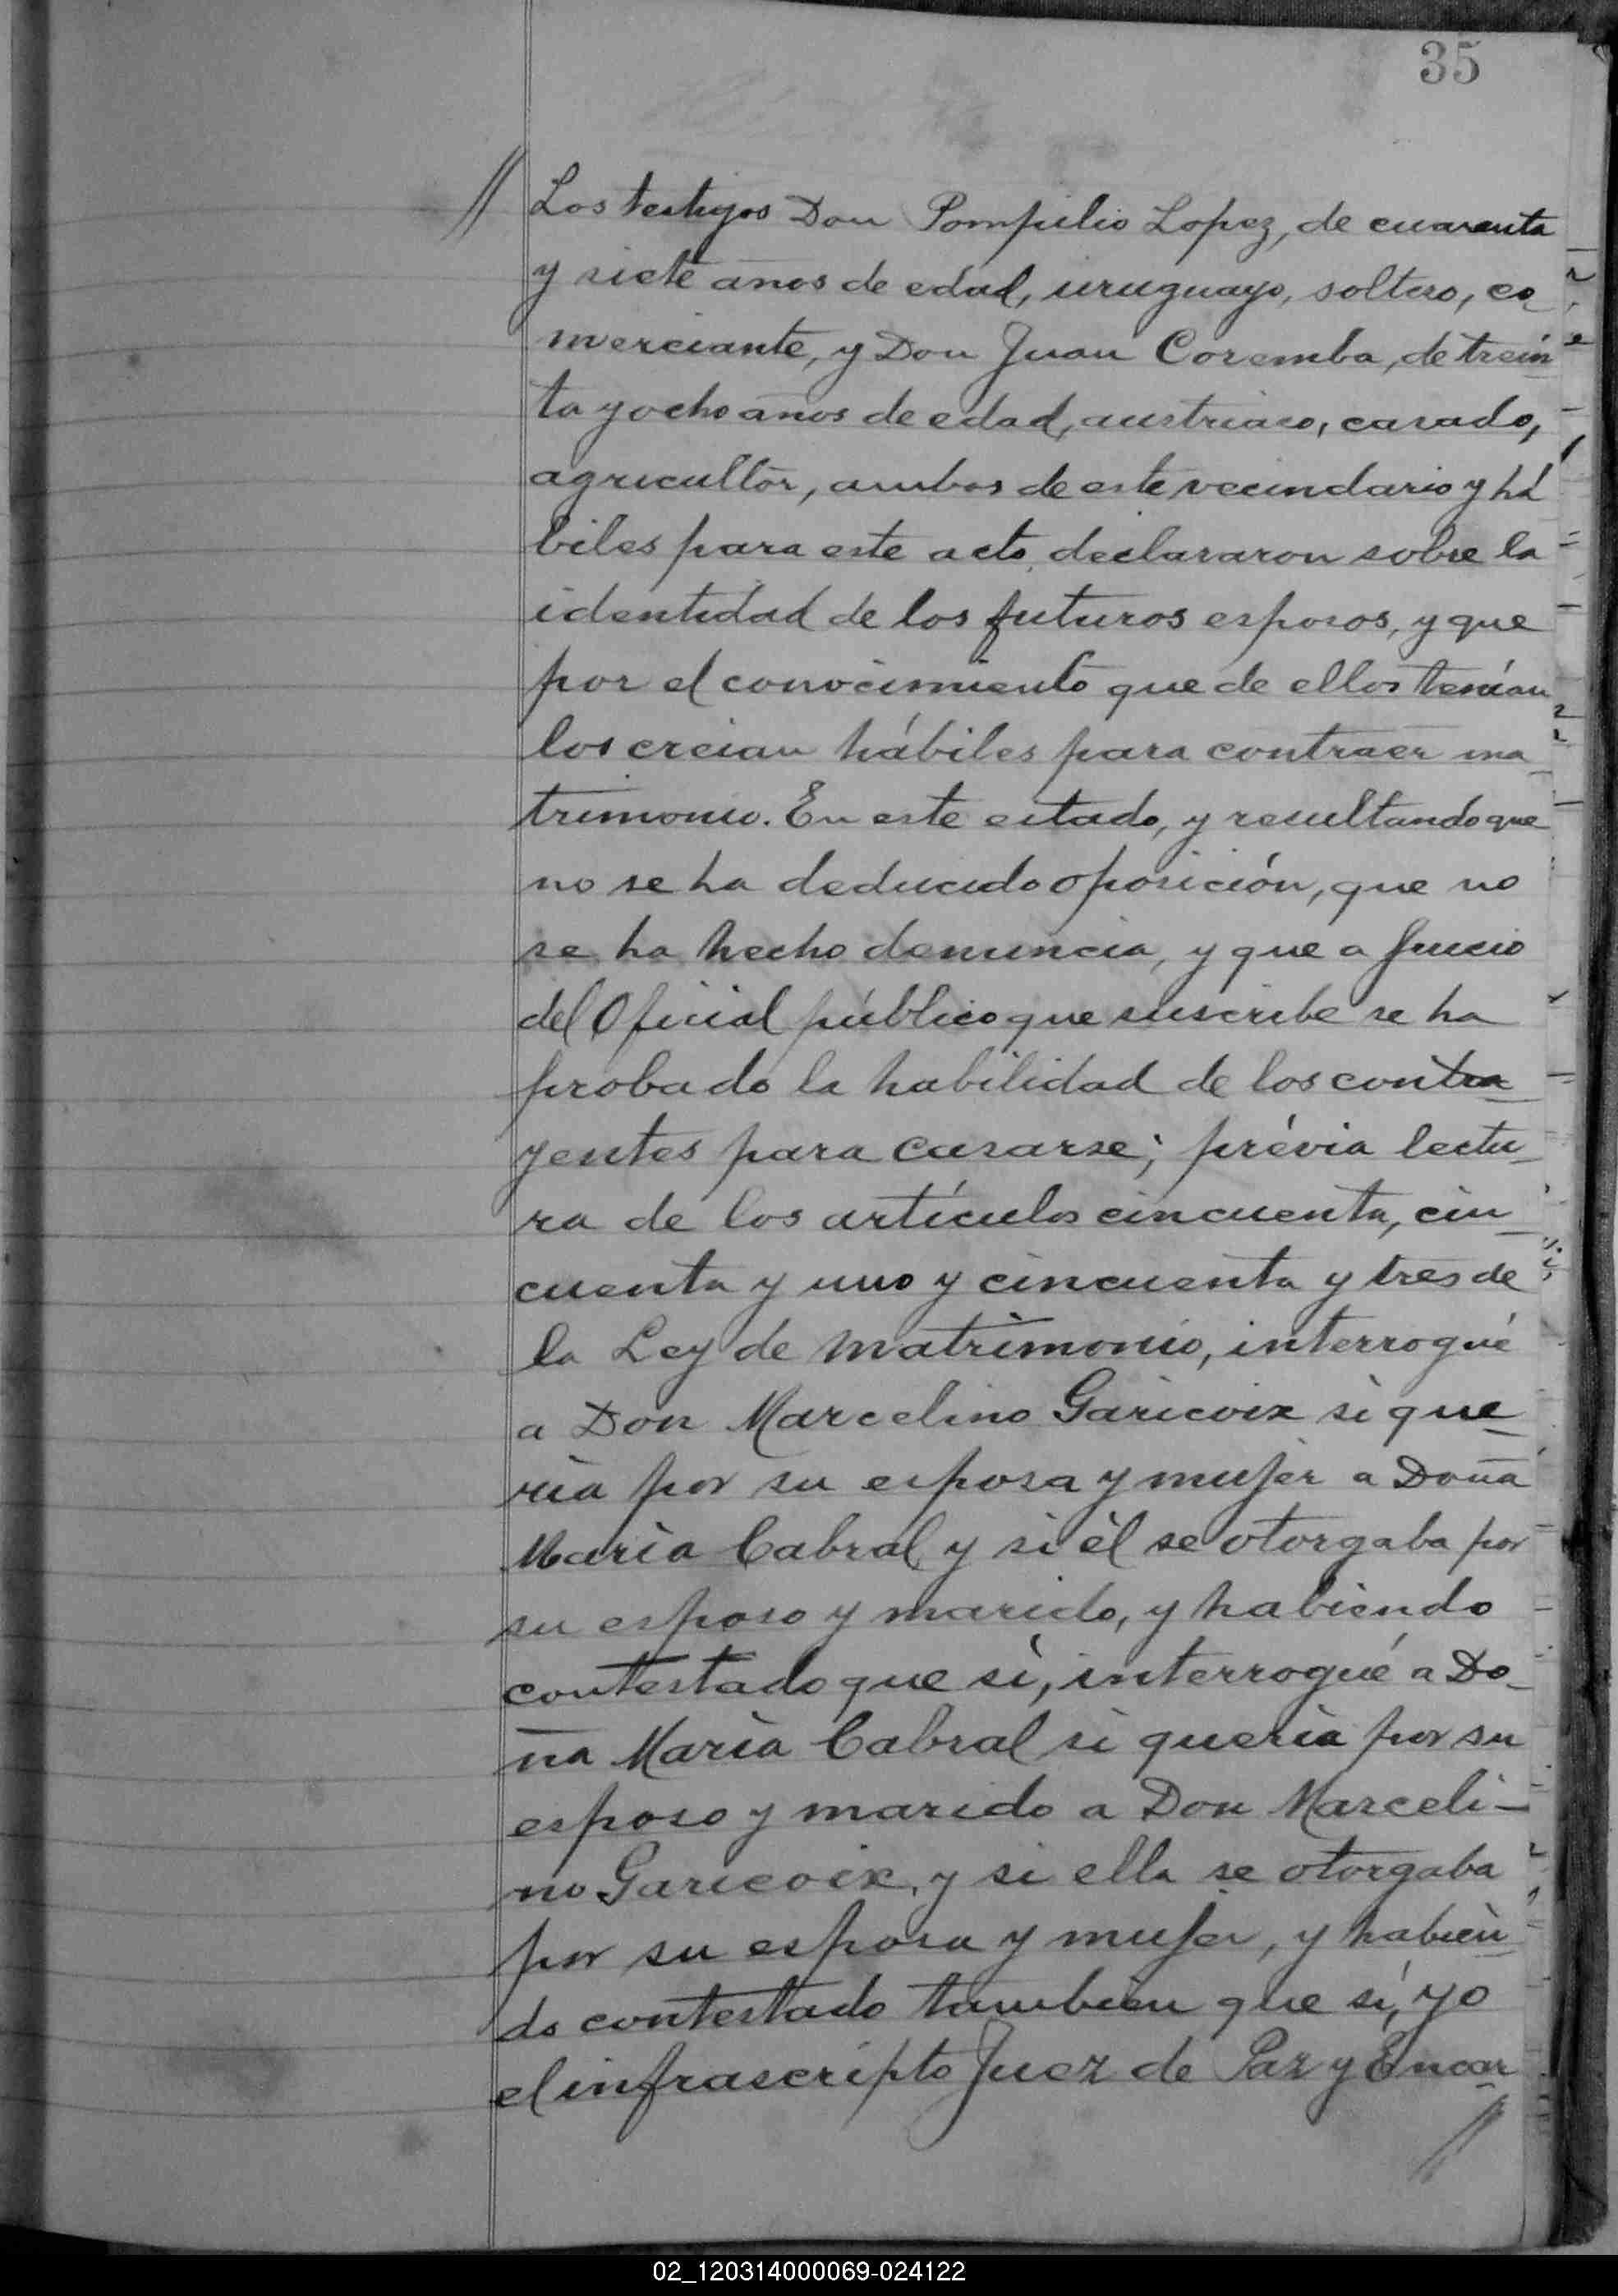 35
// Los testigos Don Pompilio Lopez, de cuarenta
y siete años de edad, uruguayo, soltero, co
merciante, y Don Juan Coremba, de trein
ta y ocho años de edad, austriaco, casado,
agricultor, ambos de este vecindario y há
biles para este acto, declararon sobre la
identidad de los futuros esposos, y que
por el conocimiento que de ellos tenían
los creian hábiles para contraer ma_
trimonio. En este estado, y resultando que
no se ha deducido oposición, que no
se ha hecho denuncia, y que a juicio
del Oficial público que suscribe se ha
probado la habilidad de los contra_
yentes para casarse; prévia lectu_
ra de los artículos cincuenta, cin_
cuenta y uno y cincuenta y tres de
la Ley de matrimonio, interrogué
a Don Marcelino Garicoix si que_
ria por su esposa y mujer a Doña
Maria Cabral y si él se otorgaba por
su esposo y marido, y habiendo
contestado que sì, interrogué a Do_
ña Maria Cabral si queria por su
esposo y marido a Don Marceli-
no Garicoix, y si ella se otorgaba
por su esposa y mujer, y habien_
do contestado tambien que sí, yo
el infrascripto Juez de Paz y Encar_
//
02_120314000069-024122